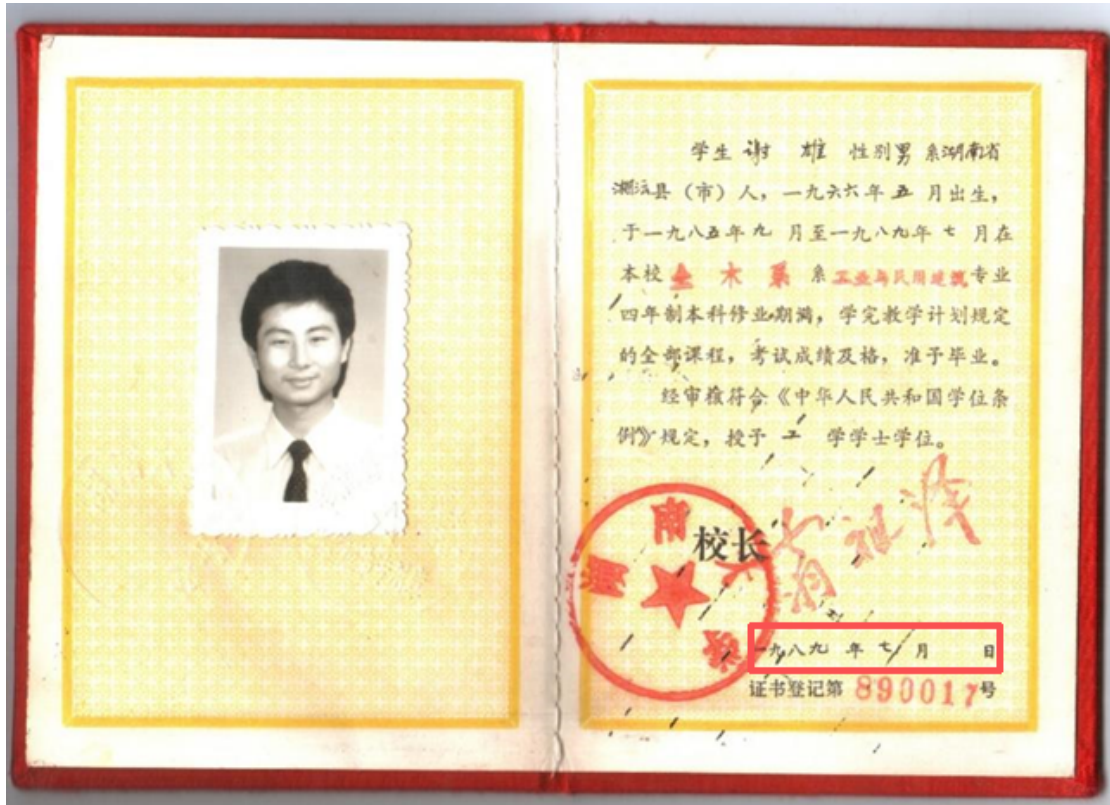 学生 谢 雄 性别男 系湖南省
湘沅县（市）人，一九六六年五月出生，
于一九八五年九月至一九八九年七月在
本校土木系系工业与民用建筑专业
四年制本科修业期满，学完教学计划规定
的全部课程，考试成绩及格，准予毕业。
经审核符合《中华人民共和国学位条
例》规定，授予工学学士学位。
湖南大学
校长
一九八九年七月 日
证书登记第890017号